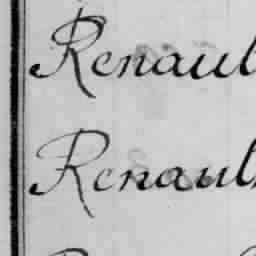 Renaul
Renaul